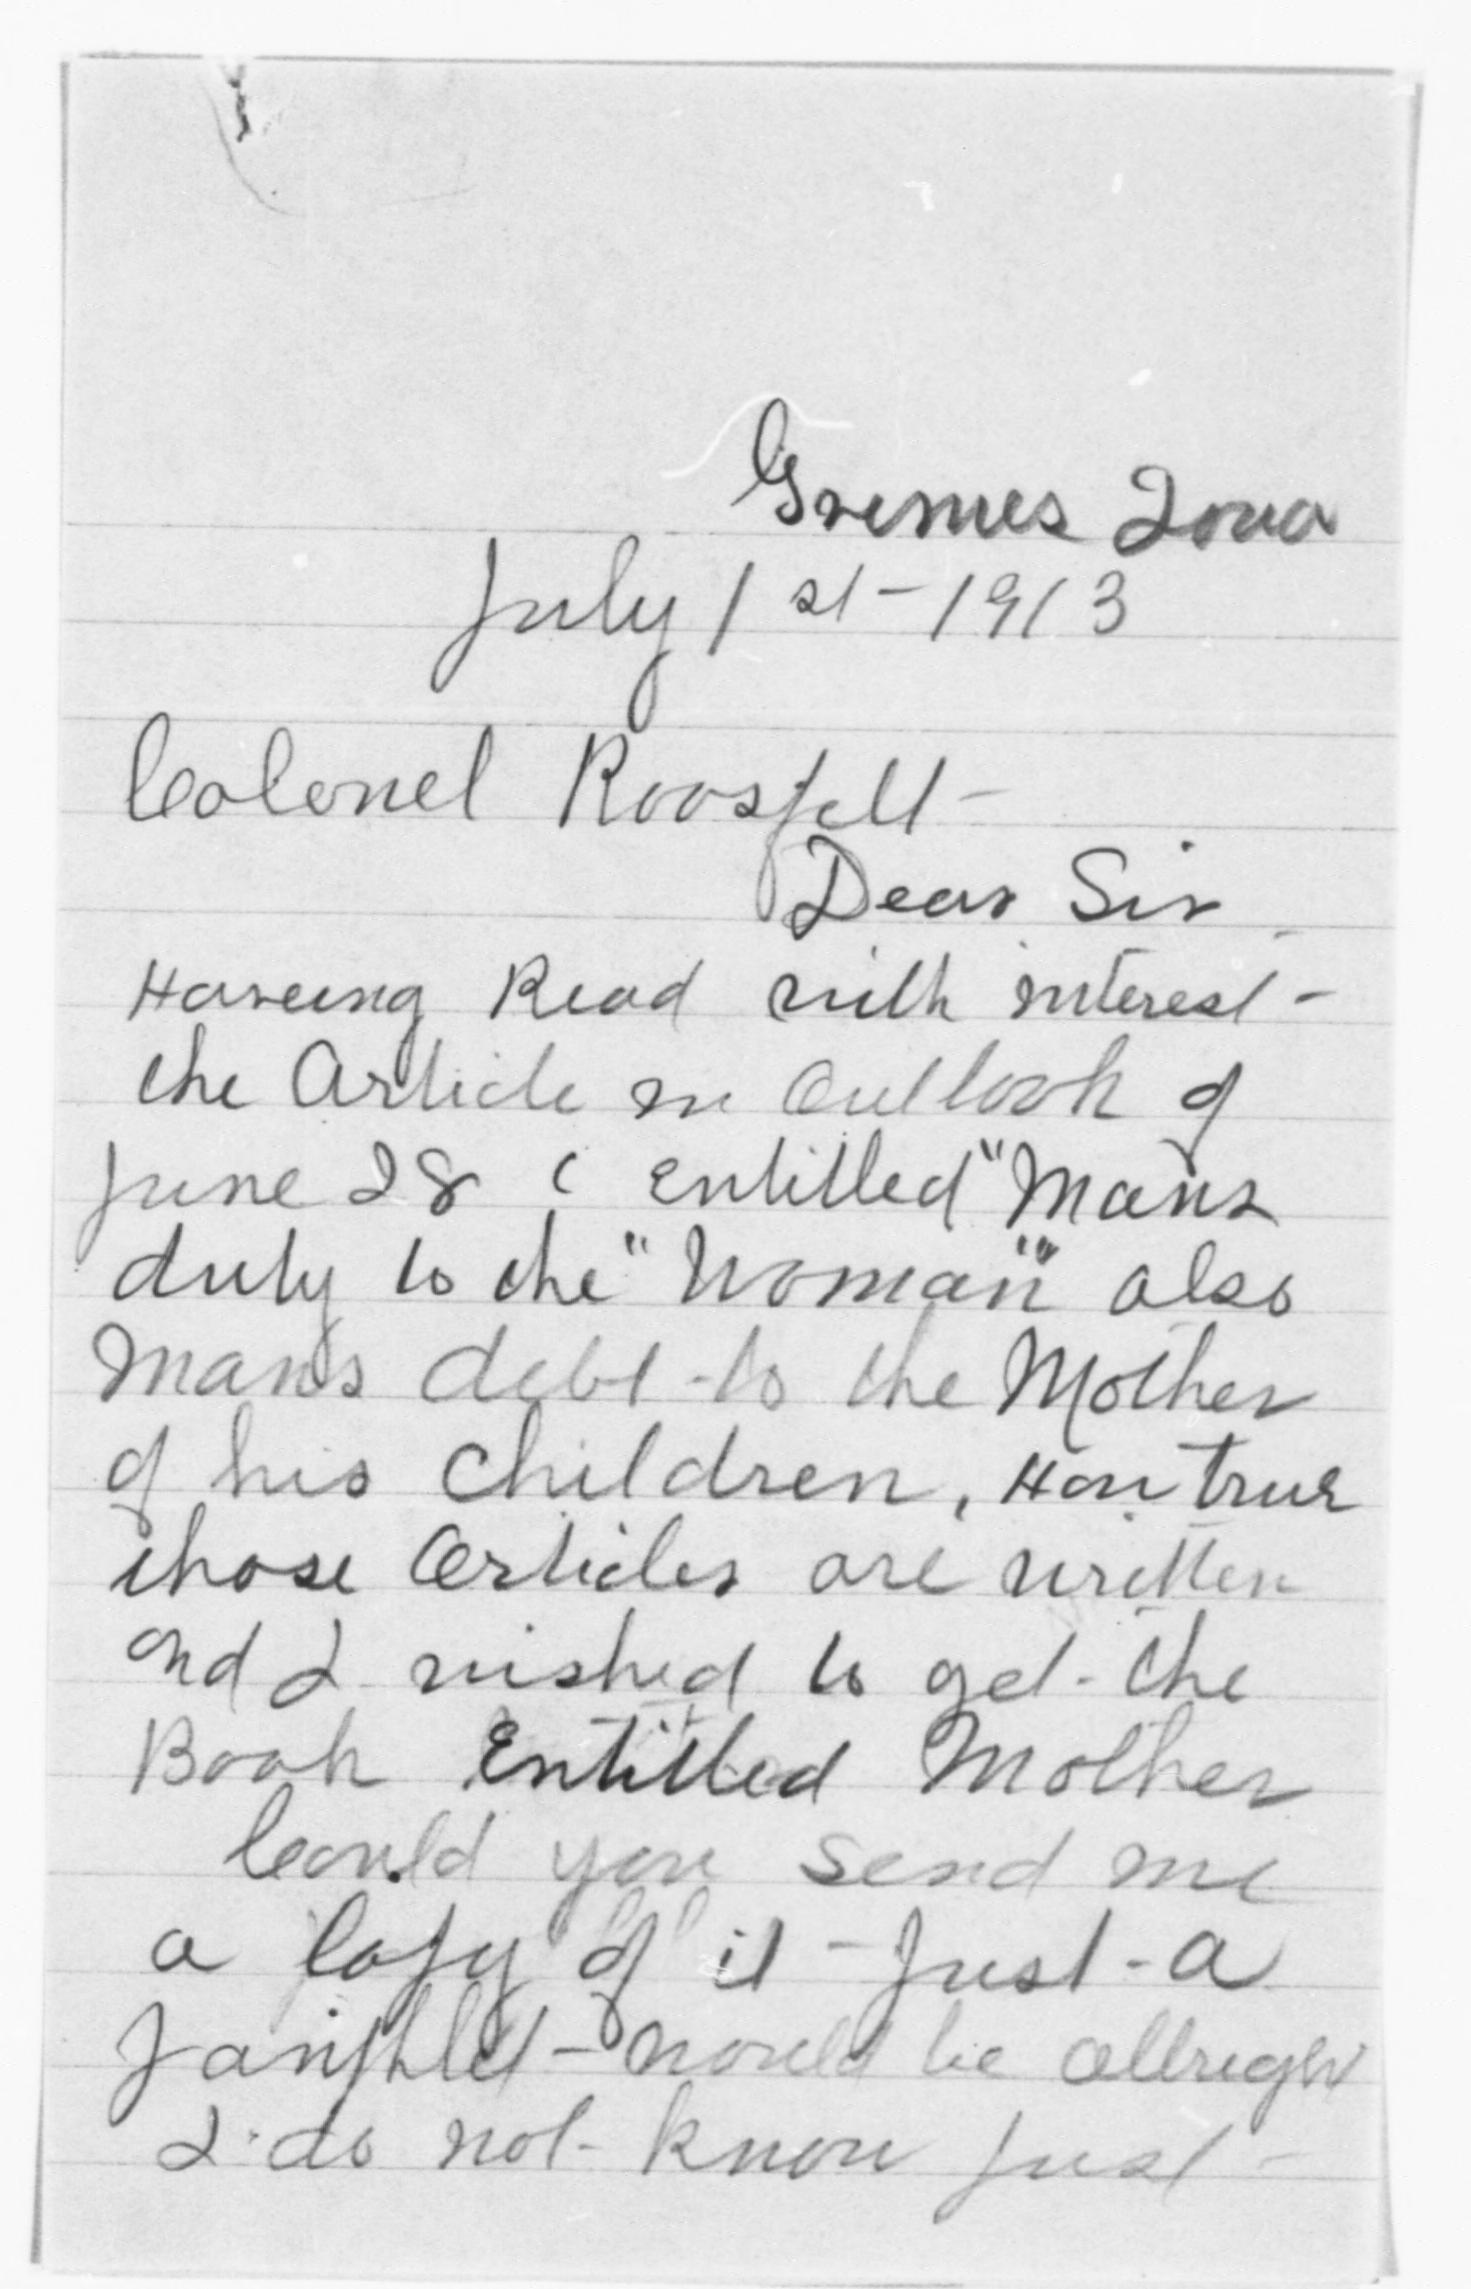 Grimes Iowa
July 1st - 1913
Colonel Roosfelt -
Dear Sir
Haveing Read with interest -
the Article in Outlook of
June 28 Entitled "Mans
duty to the "Woman"" also
Mans debt to the Mother
of his Children, How true
those Articles are written
and I wished to get the
Book Entitled Mother
Could you send me
a Copy of it - Just a
pamphlet - would be allright
I do not know just -